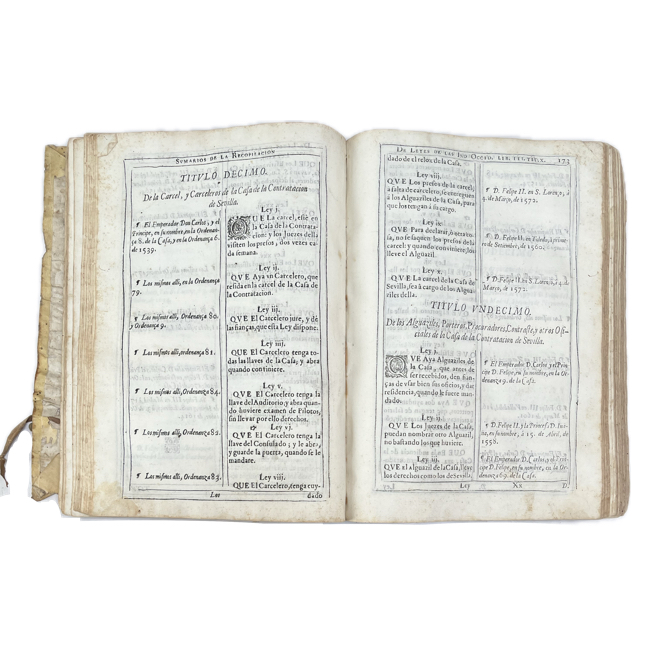 SVMARIOS DE LA RECOPILACION
TITVLO DECIMO.
De la Carcel, y Carceleros de la Casa de la Contratacion
de Sevilla.
¶ El Emperador Don Carlos, y el
Principe, en su nombre, en la Ordenan-
ça 8. de la Casa, y en la Ordenança 6.
de 1539.
Ley j.
QUE La carcel, esté en
la Casa de la Contrata-
cion: y los Juezes della
visiten los presos, dos vezes ca-
da semana.
¶ Los mismos allí, en la Ordenança
79.
Ley ij.
QVE Aya vn Carcelero, que
resida en la carcel de la Casa de
la Contratacion.
¶ Los mismos allí, Ordenança 80.
y Ordenança 9.
Ley iij.
QVE El Carcelero jure, y dè
las fianças, que esta Ley dispone.
¶ Los mismos allí, ordenança 81.
Ley iiij.
QVE El Carcelero tenga to-
das las llaves de la Casa; y abra
quando conviniere.
¶ Los mismos allí, Ordenança 84.
Ley v.
QVE El Carcelero tenga la
llave del Auditorio, y abra quan-
do huviere examen de Pilotos,
sin llevar por ello derechos.
¶ Los mismos allí, ordenança 82.
Ley vj.
QVE El Carcelero tenga la
llave del Consulado; y le abra,
y guarde la puerta, quando se le
mandare.
¶ Los mismos allí, Ordenança 83.
Ley viij.
QVE El Carcelero, tenga cuy-
Los
dado
DE LEYES DE LAS IND. OCCID. LIB. III. TIT. X. 173
dado de el relox de la Casa.
Ley viij.
QVE Los presos de la carcel,
a salas de carcelero, se entreguen
à los Alguaziles de la Casa, para
que los tengan à su cargo.
¶ D. Felipe II. en S. Lorenzo, à
4. de Março, de 1572.
Ley ix.
QVE Para declarar, ò otra co-
sa, no se saquen los presos de la
carcel: y quando conviniere, los
lleve el Alguazil.
¶ D. Felipe II. en Toledo, à prime-
ro de Setiembre, de 1560.
Ley x.
QVE La carcel de la Casa de
Sevilla, sea à cargo de los Algua-
ziles della.
¶ D. Felipe II. en S. Lorenzo, à 4. de
Março, de 1572.
TITVLO VNDECIMO.
De los Alguaziles, Porteros, Procuradores, Contraste, y otros Ofi-
ciales de la Casa de la Contratacion de Sevilla.
Ley j.
QVE Aya Alguaziles de
la Casa, que antes de
ser recebidos, den fian-
ças de vsar bien sus oficios, y dar
residencia, quando se les man-
dado.
¶ El Emperador D. Carlos, y el Prin-
cipe D. Felipe, en su nombre, en la Or-
denança 9. de la Casa.
Ley ij.
QVE Los Juezes de la Casa,
puedan nombrar otro Alguazil,
no bastando los que huviere.
¶ D. Felipe II. y la Princesa D. Jua-
na, en su nombre, à 15. de Abril, de
1558.
Ley iij.
QVE el alguazil de la Casa, lleve
los derechos como los de Sevilla.
¶ El Emperador D. Carlos, y el Prin-
cipe D. Felipe, en su nombre, en la Or-
denança 69. de la Casa.
Ley
Xx
D.